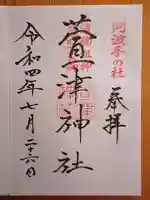 阿波手の杜
奉拝
萱津神社
令和四年七月二十六日